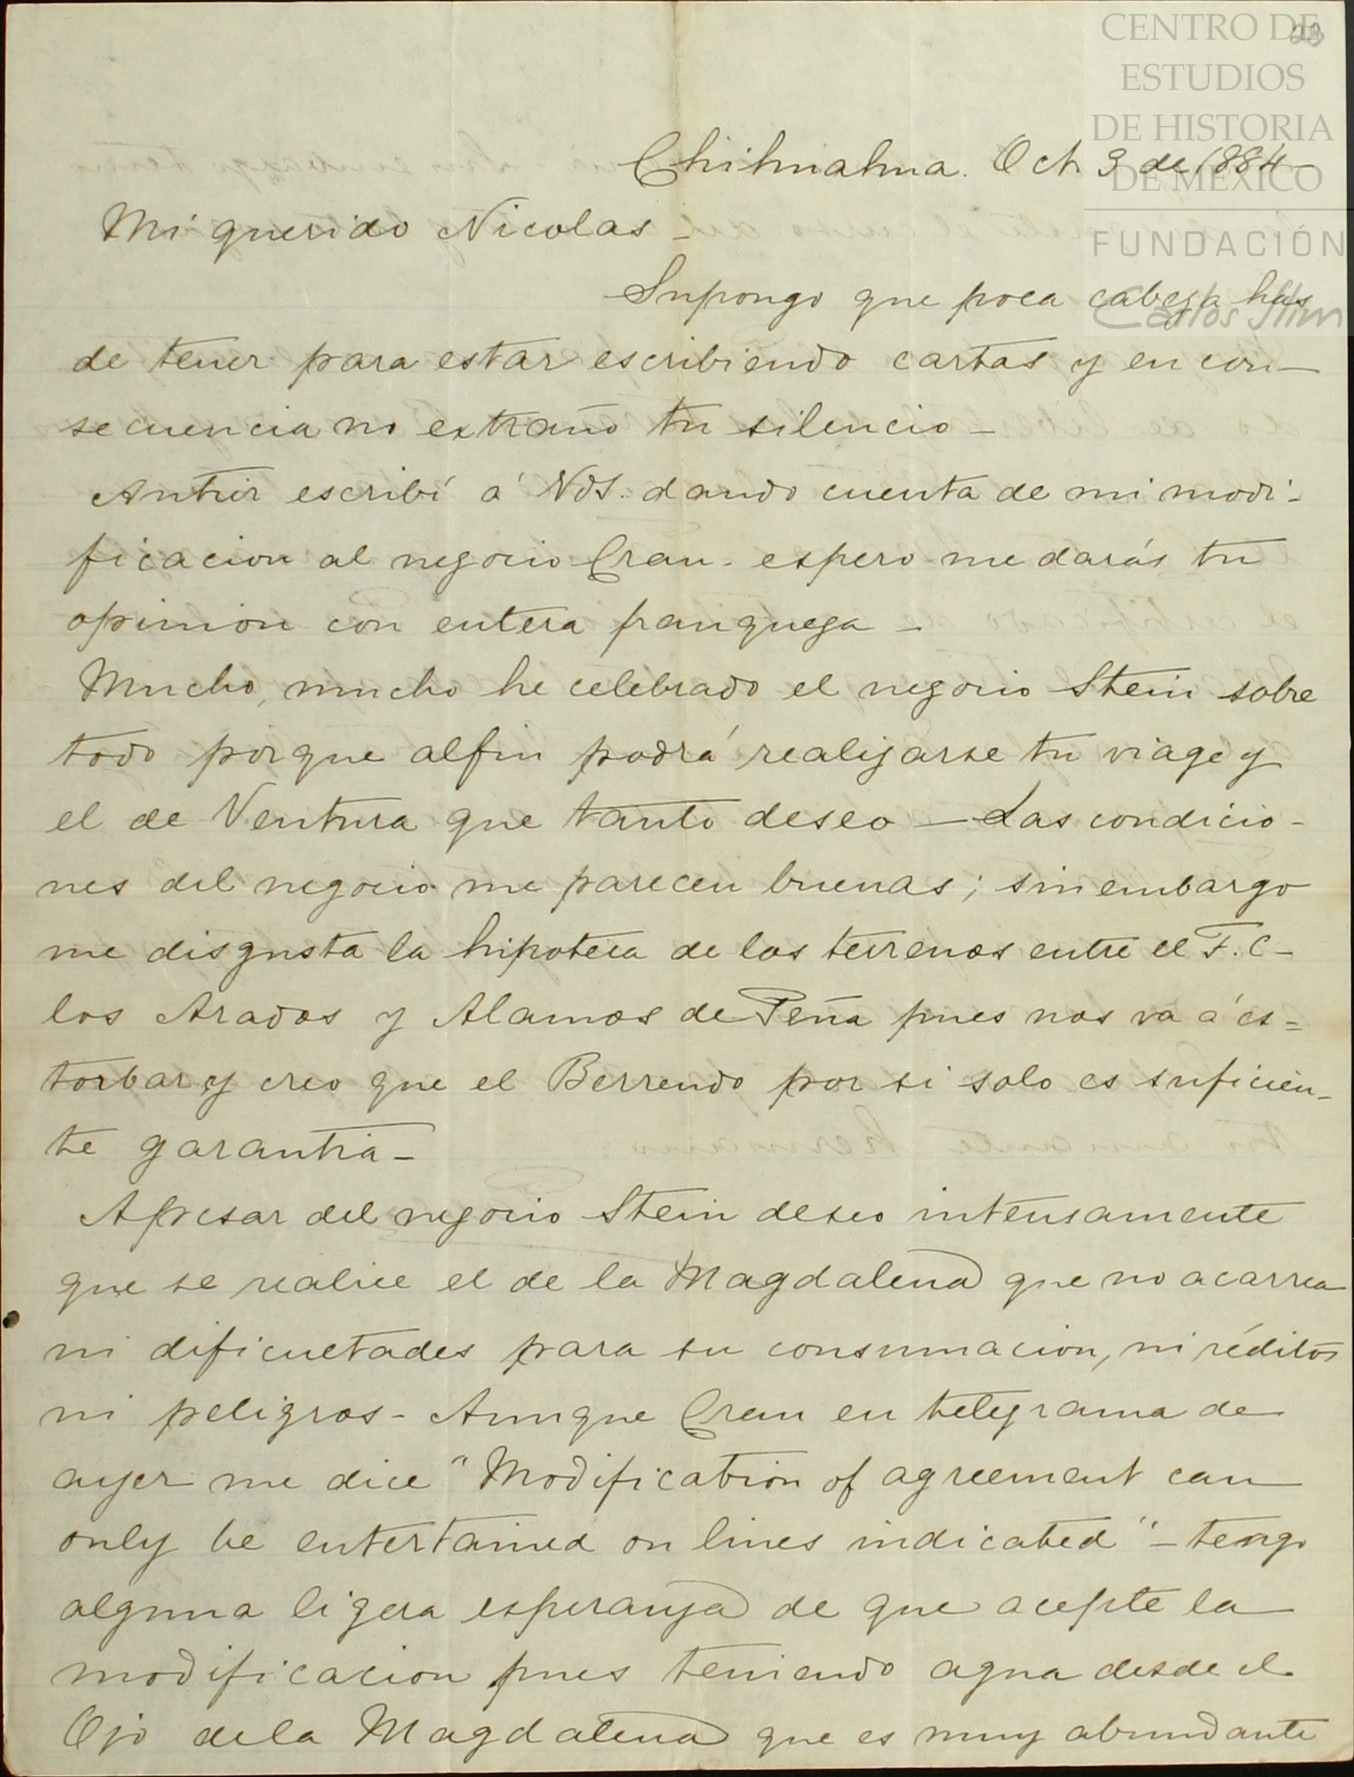 CENTRO DE
ESTUDIOS
DE HISTORIA
DE MÉXICO
FUNDACIÓN
Carlos Slim
Chihuahua. Oct 3 de 1884 -
Mi querido Nicolas -
Supongo que poca cabeza has
de tener para estar escribiendo cartas y en con-
secuencia no extraño tu silencio -
Antier escribí á Vds. dando cuenta de mi modi-
ficacion al negocio Cran. espero me darás tu
opinion con entera franqueza -
Mucho, mucho he celebrado el negocio Stein sobre
todo porque alfin podrá realizarse tu viage y
el de Ventura que tanto deseo - Las condicio-
nes del negocio me parecen buenas; sin embargo
me disgusta la hipoteca de los terrenos entre el F.C-
los Arados y Alamos de Peña pues nos va á es=
torbar y creo que el Berrendo por si solo es suficien-
te garantia -
Apesar del negocio Stein deseo intensamente
que se realice el de la Magdalena que no acarrea
ni dificultades para su consumacion, ni réditos
ni peligros - Aunque Cran en telegrama de
ayer me dice "Modification of agreement can
only be entertained on lines indicated" - tengo
alguna ligera esperanza de que acepte la
modificacion pues teniendo agua desde el
Ojo de la Magdalena que es muy abundante